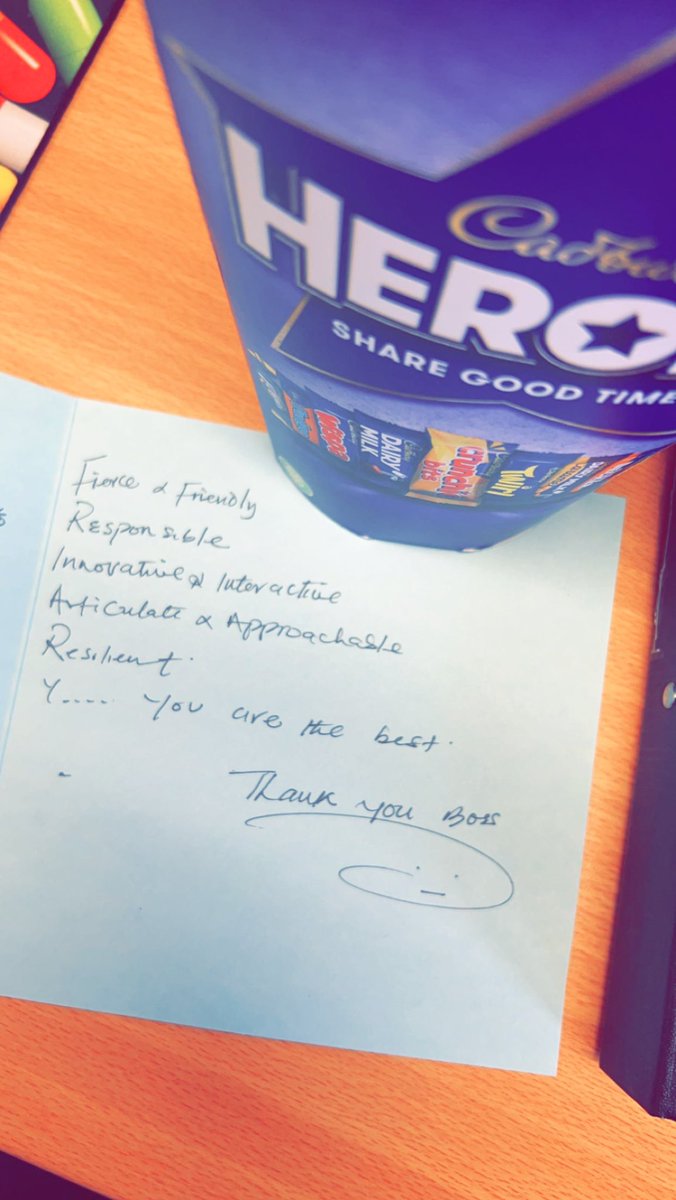 Cadbu
HERO
SHARE GOOD TIME
DAIRY
MILK
crunchie
bits
TWIRL
Fierce & Friendly
Responsible
Innovative & Interactive
Articulate & Approachable
Resilient.
Y.... You are the best.
Thank you Boss